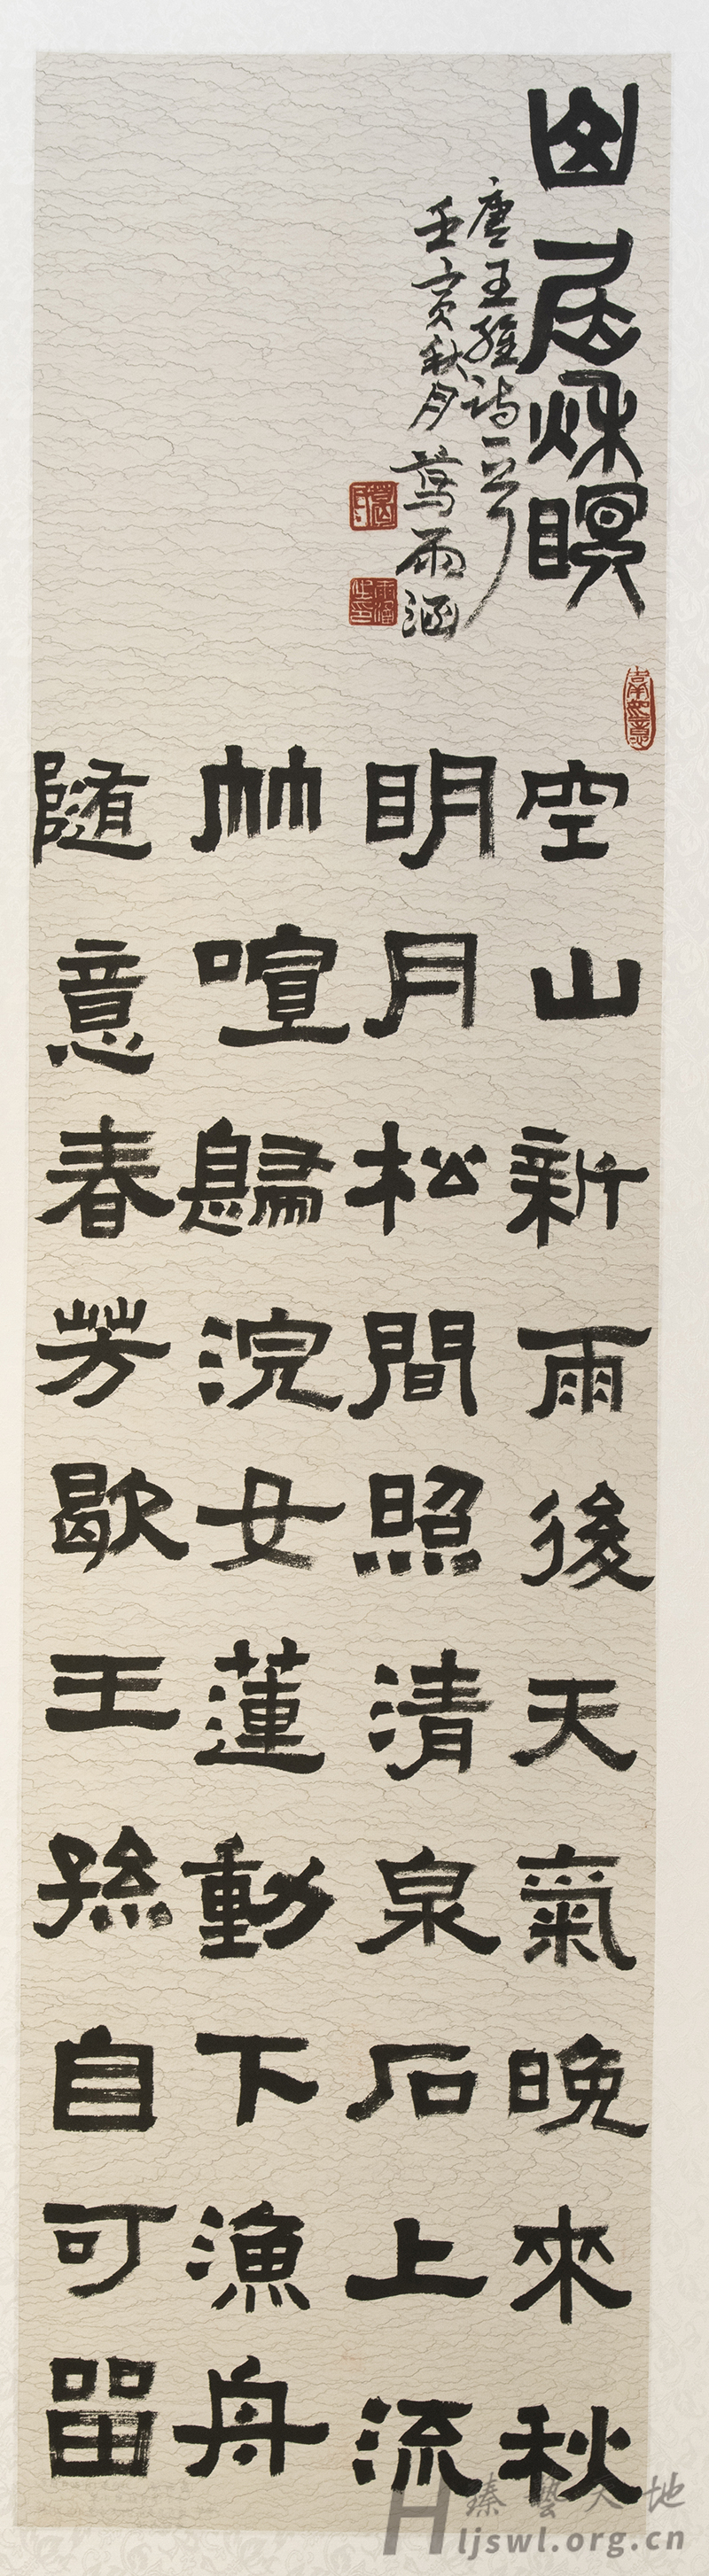 山居秌瞑
唐王維詩一首
壬寅秋月葛雨涵
空山新雨後天氣晚來秋
明月松間照清泉石上流
竹喧歸浣女蓮動下漁舟
隨意春芳歇王孫自可留
臻藝天地
Hljswl.org.cn